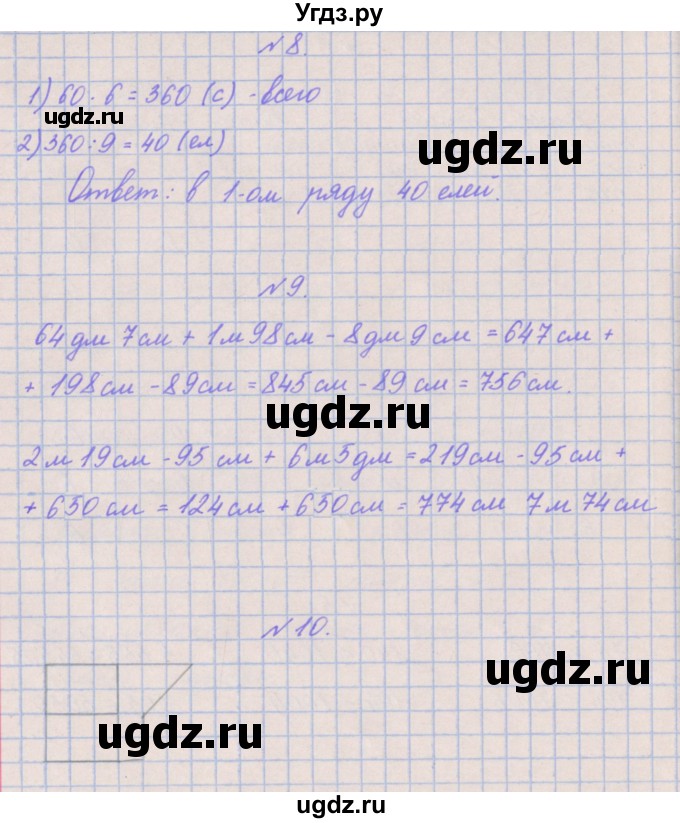 Угдз.ру
№8.
1) 60·6=360 (с) - всего
ugdz.ru
ugdz.ru
2) 360:9=40 (ел)
Ответ: в 1-ом ряду 40 елей.
ugdz.ru
№9.
64дм 7см + 1м98см - 8дм9см = 647см +
+ 198см - 89см = 845см - 89см = 756см.
ugdz.ru
2м19см - 95см + 6м5дм = 219см - 95см +
+ 650см = 124см + 650см = 774см 7м74см
№10.
ugdz.ru
ugdz.ru
ugdz.ru